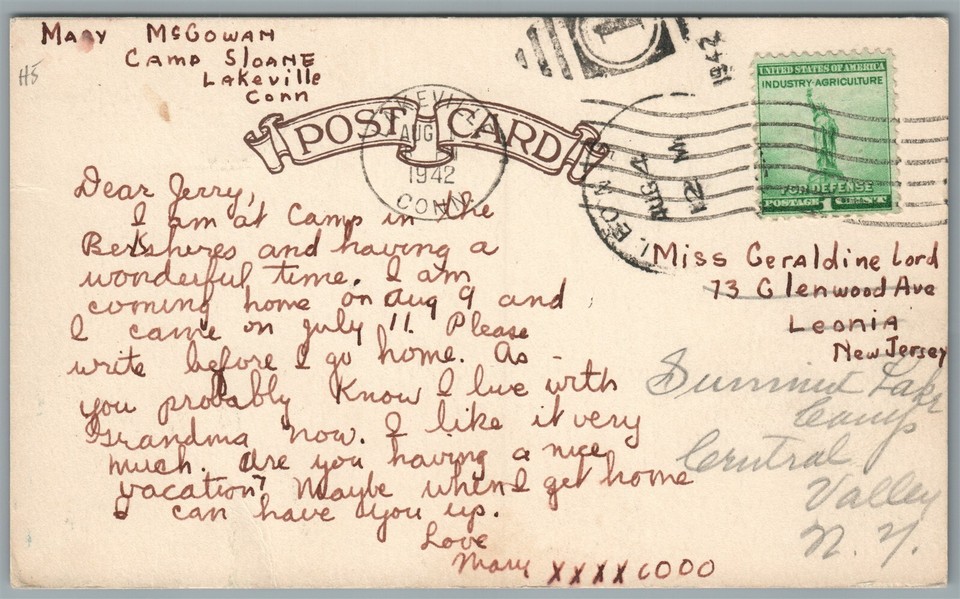 Mary McGowan
Camp Sloane
Lakeville
Conn
H5
POST CARD
LAKEVILLE
AUG
1942
CONN
1
1942
LEONIA
AUG 4
12 M
1942
UNITED STATES OF AMERICA
INDUSTRY AGRICULTURE
FOR DEFENSE
POSTAGE 1 CENT
Dear Jerry,
I am at Camp in the
Berkshires and having a
wonderful time. I am
coming home on Aug 9 and
I came on July 11. Please
write before I go home. As
you probably Know I live with
Grandma now. I like it very
much. Are you having a nice
vacation? Maybe when I get home
I can have you up.
Love
Mary XXXX OOOO
Miss Geraldine Lord
73 Glenwood Ave
Leonia
New Jersey
Summit Lake
Camp
Central
Valley
N. Y.